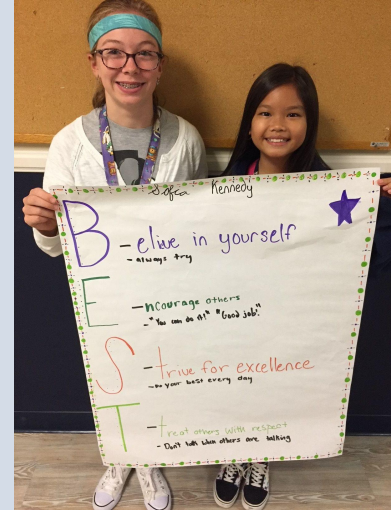 Sofia Kennedy
B-elive in yourself
- always try
E-ncourage others
- "You can do it!" "Good job!"
S-trive for excellence
- Do your best every day
T-treat others with respect
- Don't talk when others are talking